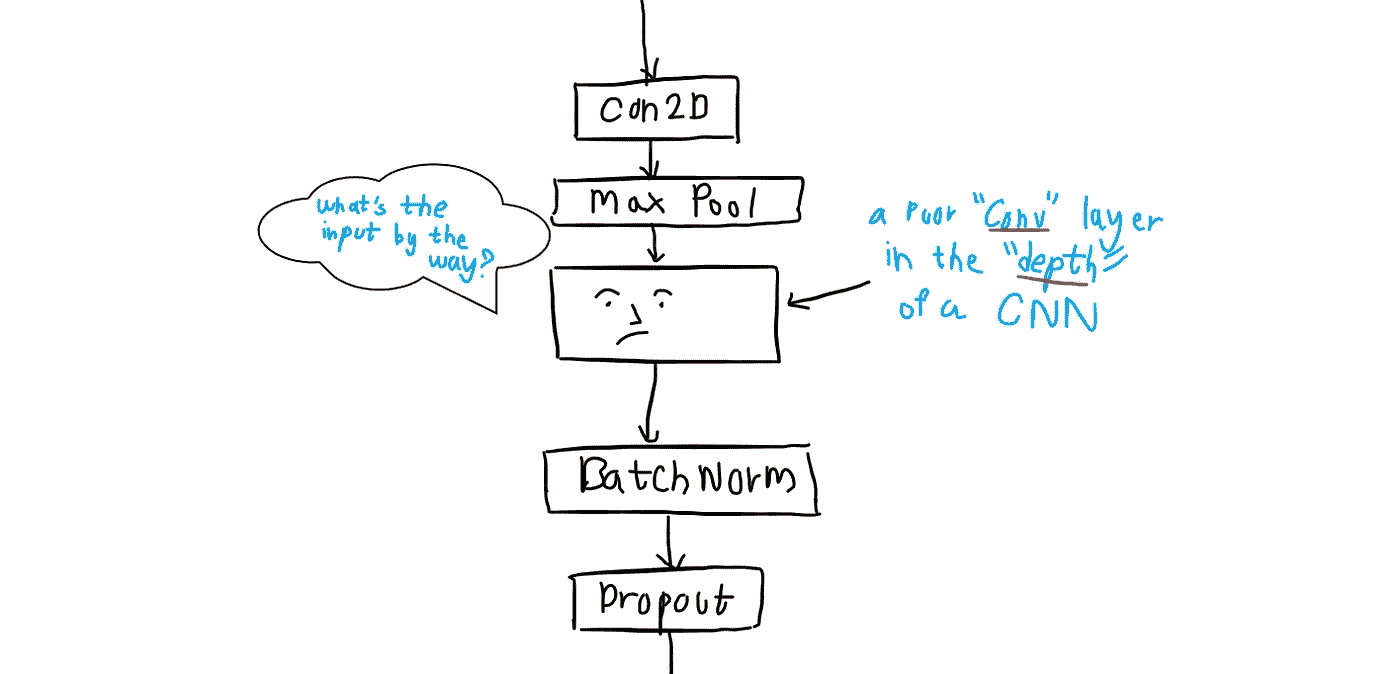 Con2D
Max Pool
what's the
input by the
way?
a poor "Conv" layer
in the "depth"
of a CNN
BatchNorm
Dropout